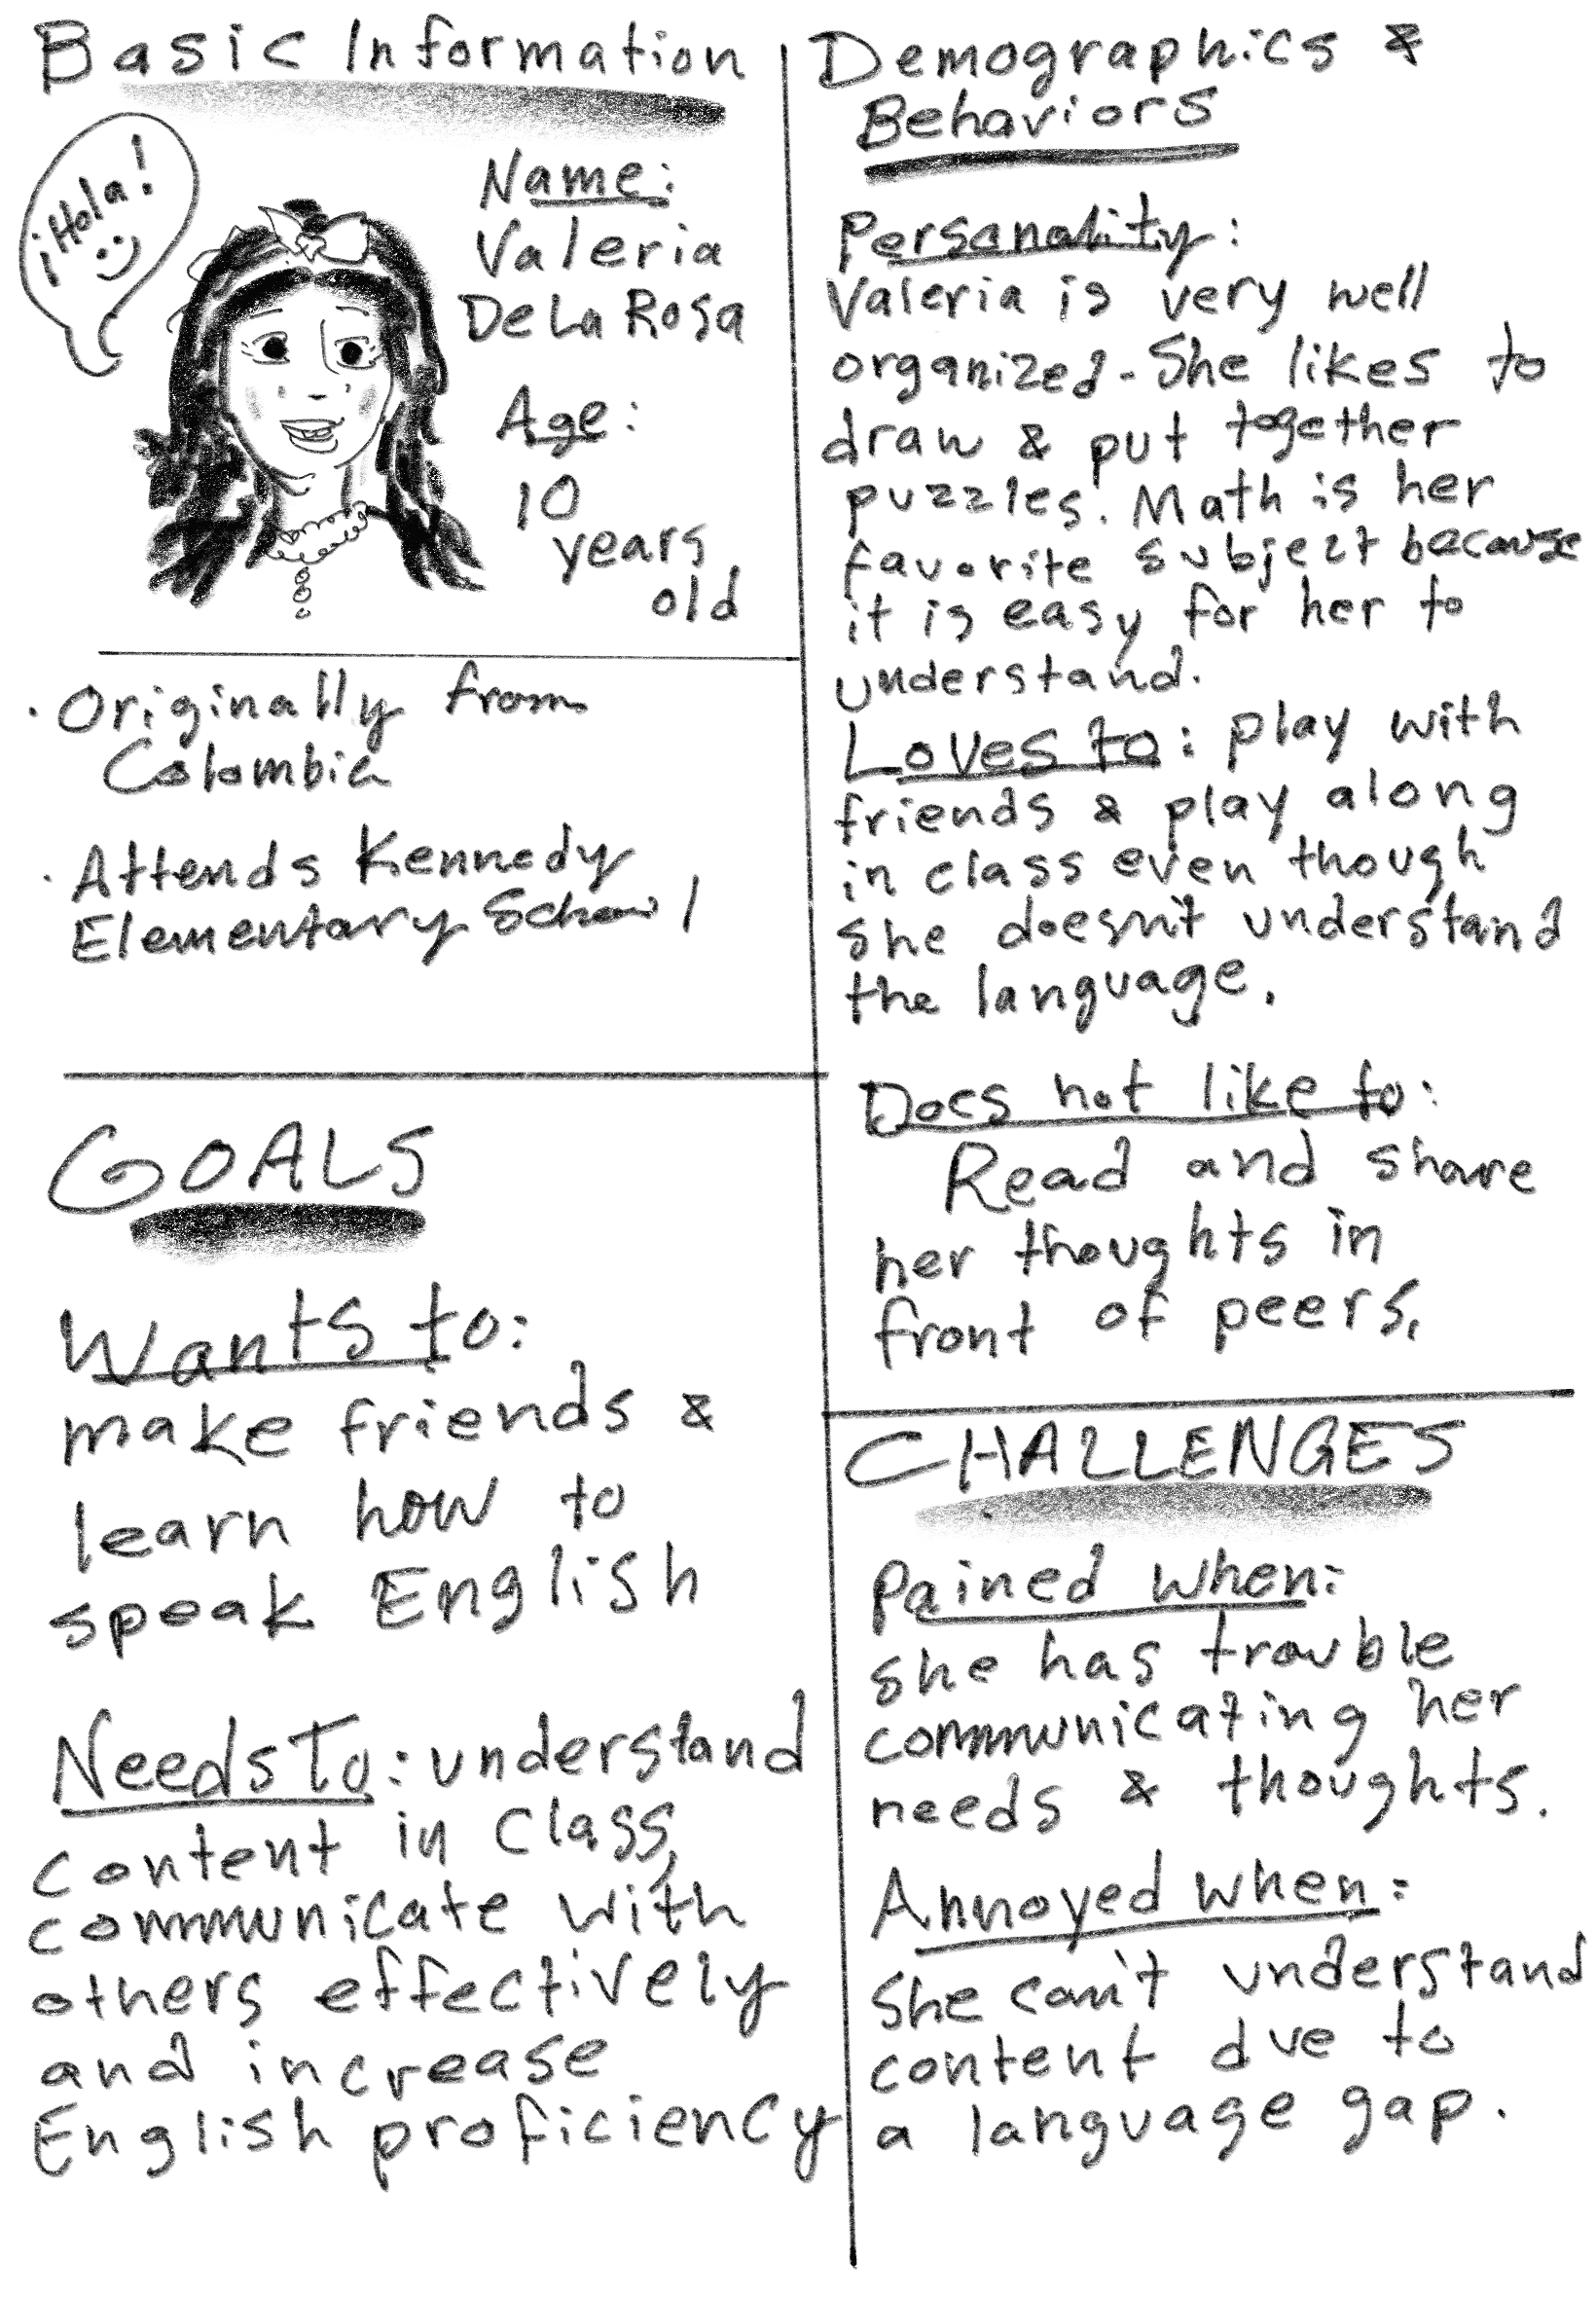 Basic Information
¡Hola!
Name:
Valeria
De La Rosa
Age:
10
years
old
· Originally from
Colombia
· Attends Kennedy
Elementary School
GOALS
Wants to:
make friends &
learn how to
speak English
Needs To: understand
content in class,
communicate with
others effectively
and increase
English proficiency
Demographics &
Behaviors
Personality:
Valeria is very well
organized. She likes to
draw & put together
puzzles. Math is her
favorite subject because
it is easy for her to
understand.
Loves to: play with
friends & play along
in class even though
she doesn't understand
the language.
Does not like to:
Read and share
her thoughts in
front of peers.
CHALLENGES
Pained when:
she has trouble
communicating her
needs & thoughts.
Annoyed when:
She can't understand
content due to
a language gap.